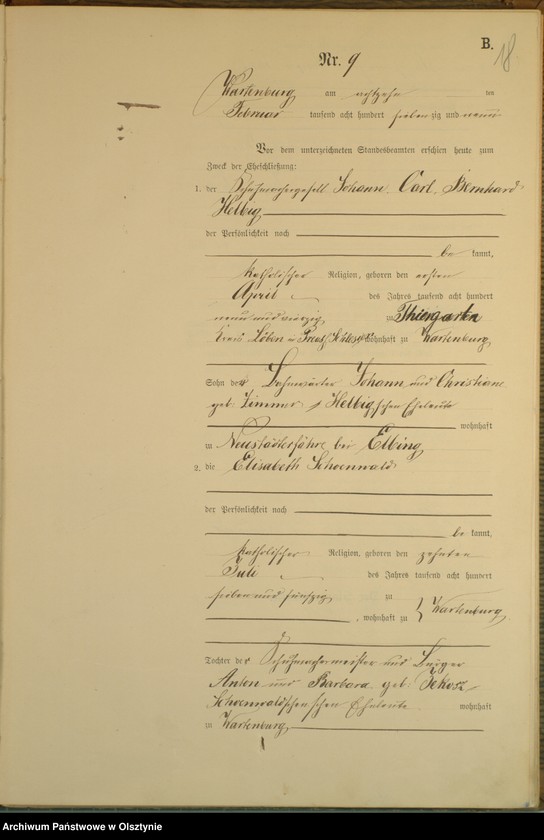 B.
18
Nr. 9
Wartenburg am achtzehn ten
Februar tausend acht hundert siebenzig und neun
Vor dem unterzeichneten Standesbeamten erschien heute zum
Zweck der Eheschließung:
1. der Schuhmachergesell Johann Carl Bernhard
Helbig
der Persönlichkeit nach
be kannt,
katholischer Religion, geboren den ersten
April des Jahres tausend acht hundert
neun und vierzig zu Thiergarten
Kreis wohnhaft zu Wartenburg
Sohn der Johann und Christiane
geb. Zimmer Helbig'schen Eheleute
wohnhaft
zu Neustädterfähre bei Elbing
2. die Elisabeth Schoenwald
der Persönlichkeit nach
be kannt,
katholischer Religion, geboren den zehnten
Juli des Jahres tausend acht hundert
sieben und fünfzig zu
, wohnhaft zu Wartenburg
Tochter der Schuhmachermeister und Bürger
Anton und Barbara geb.
Schoenwald'schen Eheleute wohnhaft
zu Wartenburg
Archiwum Państwowe w Olsztynie